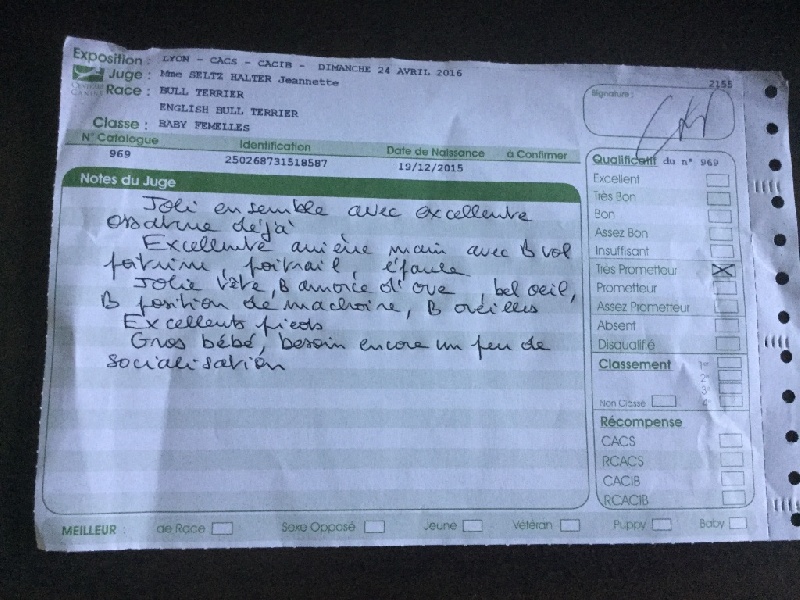 Exposition : LYON - CACS - CACIB - DIMANCHE 24 AVRIL 2016
Juge : Mme SELTZ HALTER Jeannette
Race : BULL TERRIER
ENGLISH BULL TERRIER
Classe : BABY FEMELLES
N° Catalogue Identification Date de Naissance à Confirmer
969 250268731518587 19/12/2015
Notes du Juge
Joli ensemble avec excellente
ossature déjà
Excellente arrière main avec B vol
poitrine, poitrail, épaule
Jolie tête, B amorce d'ove, bel oeil,
B position de machoire, B oreilles
Excellents pieds
Gros bébé, besoin encore un peu de
socialisation
2155
Signature :
Qualificatif du n° 969
Excellent
Très Bon
Bon
Assez Bon
Insuffisant
Très Prometteur X
Prometteur
Assez Prometteur
Absent
Disqualifié
Classement
1
2
3
4
Non Classé
Récompense
CACS
RCACS
CACIB
RCACIB
MEILLEUR : de Race Sexe Opposé Jeune Vétéran Puppy Baby